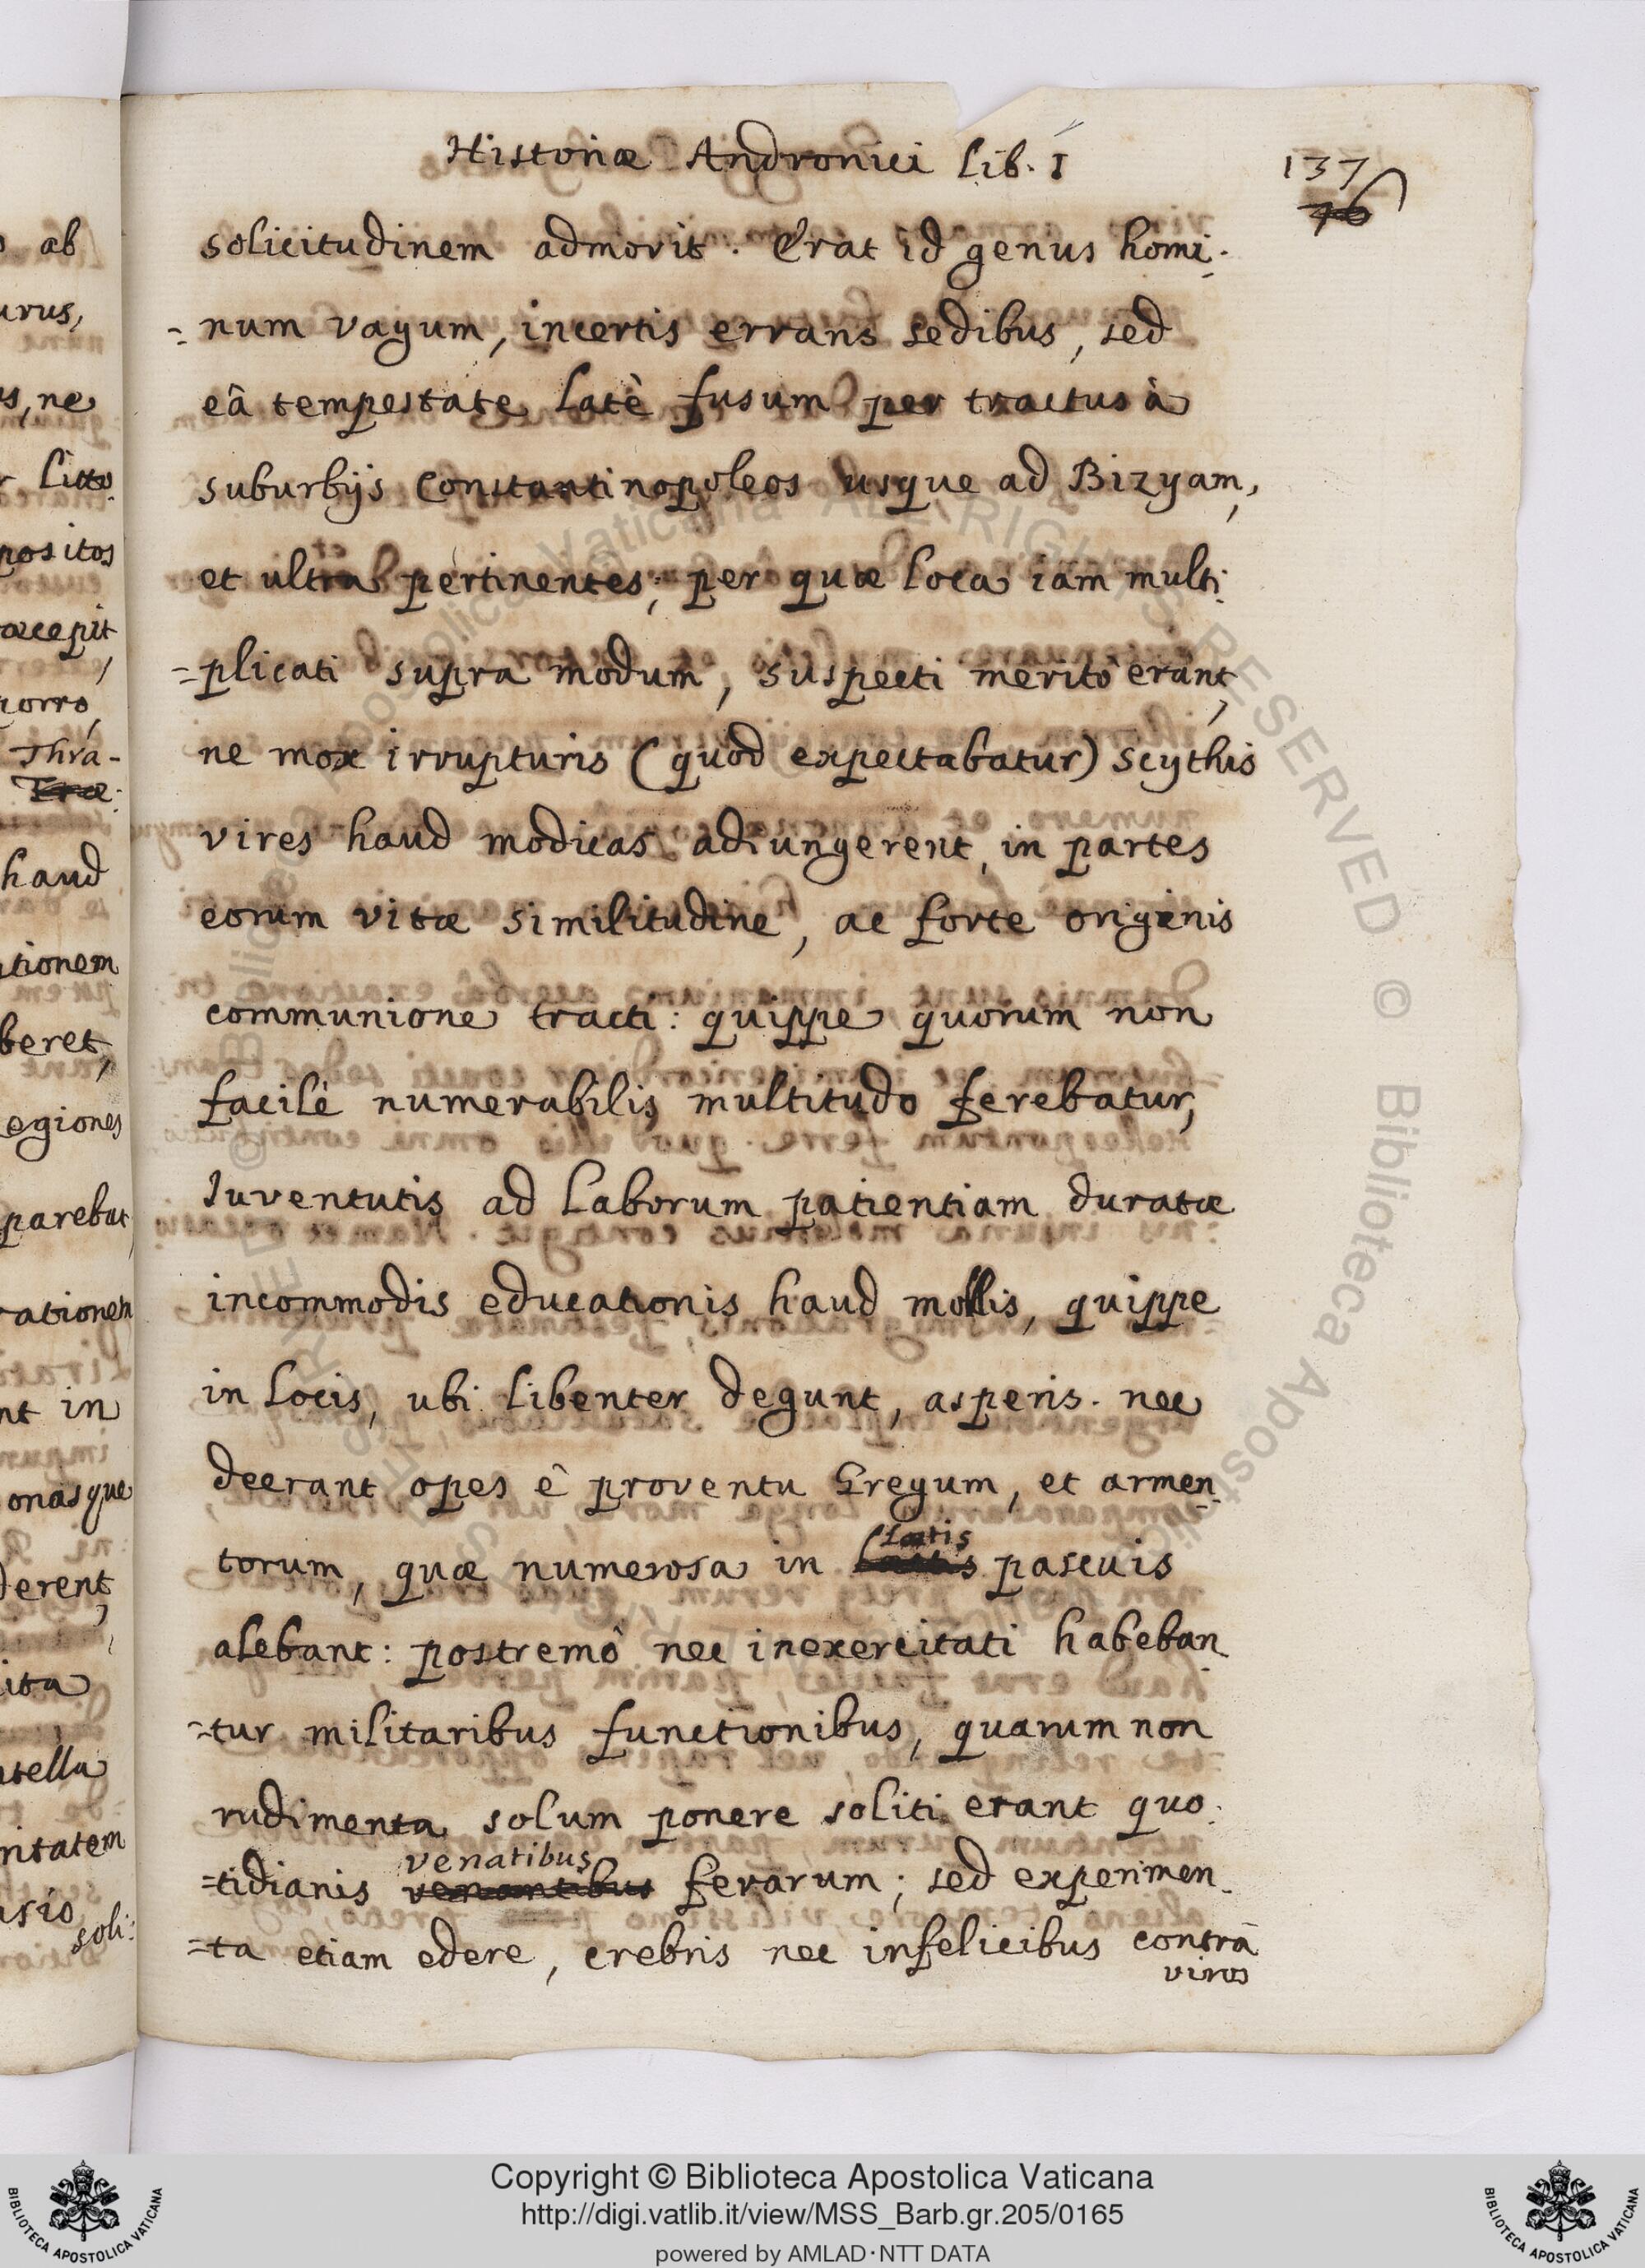 Historiæ Andronici Lib. I
137
76
solicitudinem admovit. Erat id genus homi-
-num vagum, incertis errans sedibus, sed
eâ tempestate latè fusum per tractus à
suburbijs Constantinopoleos usque ad Bizyam,
et ultra pertinentes; per quæ loca iam multi-
=plicati supra modum, suspecti meritò erant,
ne mox irrupturis (quod expectabatur) Scythis
vires haud modicas adiungerent, in partes
eorum vitæ similitudine, ac forte originis
communione tracti: quippe quorum non
facilè numerabilis multitudo ferebatur,
Iuventutis ad laborum patientiam duratæ
incommodis educationis haud mollis, quippe
in locis, ubi libenter degunt, asperis. nec
deerant opes è proventu Gregum, et armen-
latis
torum, quæ numerosa in pascuis
alebant: postremò nec inexercitati habeban-
-tur militaribus functionibus, quarum non
rudimenta solum ponere soliti erant quo-
venatibus
=tidianis venantibus ferarum; sed experimen-
=ta etiam edere, crebris nec infelicibus contrà
viros
ab
ne
Thra-
haud
tionem
beret,
egiones
parebat,
rationem
in
onasque
derent,
ita
soli:
Copyright © Biblioteca Apostolica Vaticana
http://digi.vatlib.it/view/MSS_Barb.gr.205/0165
powered by AMLAD·NTT DATA
BIBLIOTECA APOSTOLICA VATICANA
BIBLIOTECA APOSTOLICA VATICANA